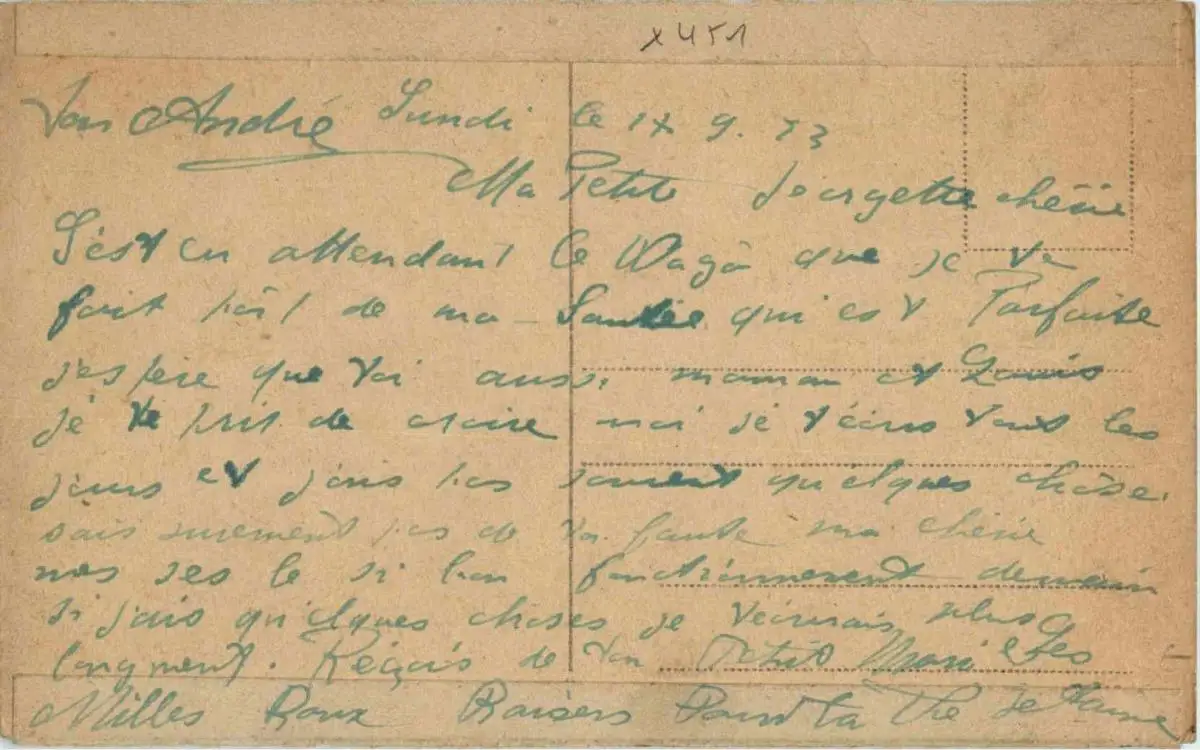 x 451
Ton André Lundi le 17 9. 23
Ma Petite Georgette chérie
S'est en attendant le que je te
fait part de ma Santée qui est Parfaite
j'espère que toi aussi maman et Louis
jé te prit de croire moi jé t'écris tout les
jours et jais pas souvent quelques chôse.
sais surement pas de ta faute ma chérie
mes ses le si bon fonctionnement demain
si jais quelques choses je t'écrirais plus
longment. Reçois de ton Petit Mari et ses
Milles Doux Baisers Pour la Vie Je t'aime